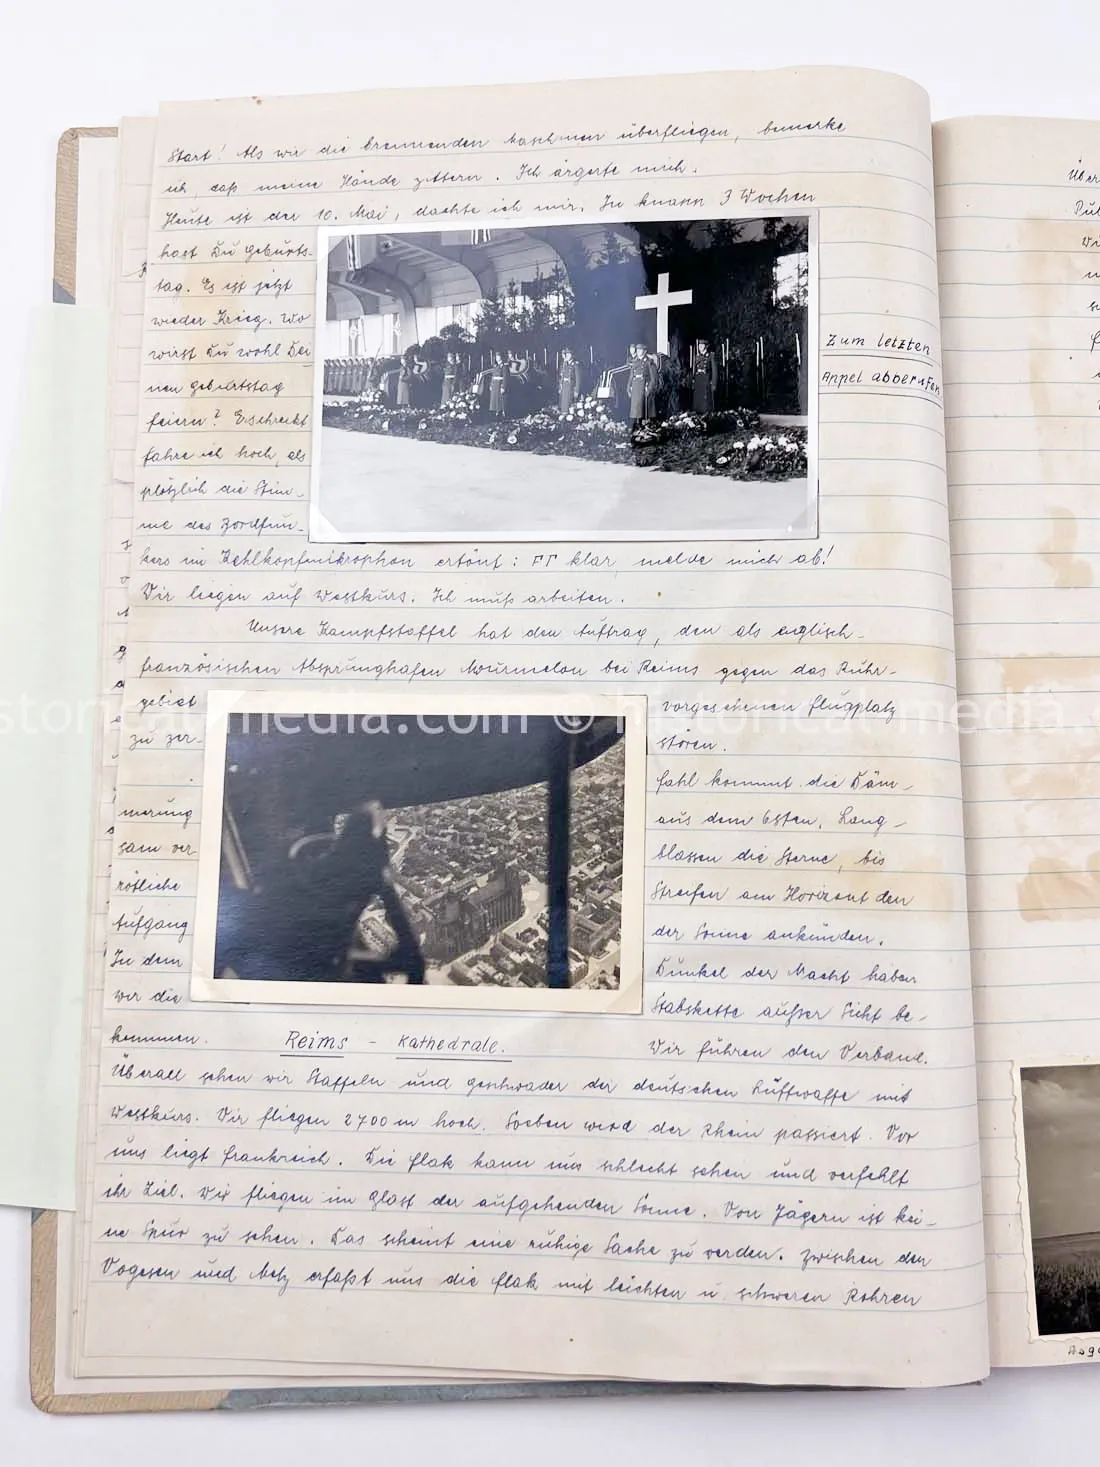 Start! Als wir die brennenden Maschinen überfliegen, bemerke
ich, daß meine Hände zittern. Ich ärgerte mich.
Heute ist der 10. Mai, dachte ich mir. In knapp 3 Wochen
hast Du Geburts-
tag. Es ist jetzt
wieder Krieg. Wo
wirst Du wohl Dei
nen Geburtstag
feiern? Erschreckt
fahre ich hoch, als
plötzlich die Stim-
me des Bordfun-
kers im Kehlkopfmikrophon ertönt: FT klar, melde mich ab!
Wir liegen auf Westkurs. Ich muß arbeiten.
Zum letzten
Appel abberufen
Unsere Kampfstaffel hat den Auftrag, den als englisch-
französischen Absprunghafen Mourmelon bei Reims gegen das Ruhr-
gebiet vorgesehenen Flugplatz
zu zer- stören.
fahl kommt die Däm-
merung aus dem Osten. Lang-
sam ver- blassen die Sterne, bis
rötliche Streifen am Horizont den
Aufgang der Sonne ankünden.
In dem Dunkel der Nacht haben
wir die Stabskette außer Sicht be-
kommen. Wir führen den Verband.
Reims - Kathedrale.
Überall sehen wir Staffeln und Geschwader der deutschen Luftwaffe mit
Westkurs. Wir fliegen 2700 m hoch. Soeben wird der Rhein passiert. Vor
uns liegt Frankreich. Die Flak kann uns schlecht sehen und verfehlt
ihr Ziel. Wir fliegen im Glast der aufgehenden Sonne. Von Jägern ist kei-
ne Spur zu sehen. Das scheint eine ruhige Sache zu werden. Zwischen den
Vogesen und Metz erfaßt uns die Flak mit leichten u. schweren Rohren
historicalmedia.com © historicalmedia.